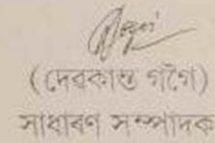 (দেৱকান্ত গগৈ)
সাধাৰণ সম্পাদক